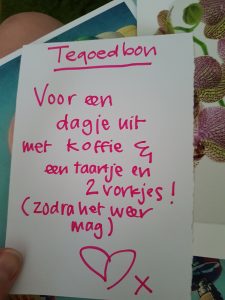 Tegoedbon
Voor een
dagje uit
met koffie &
een taartje en
2 vorkjes!
(zodra het weer
mag)
x